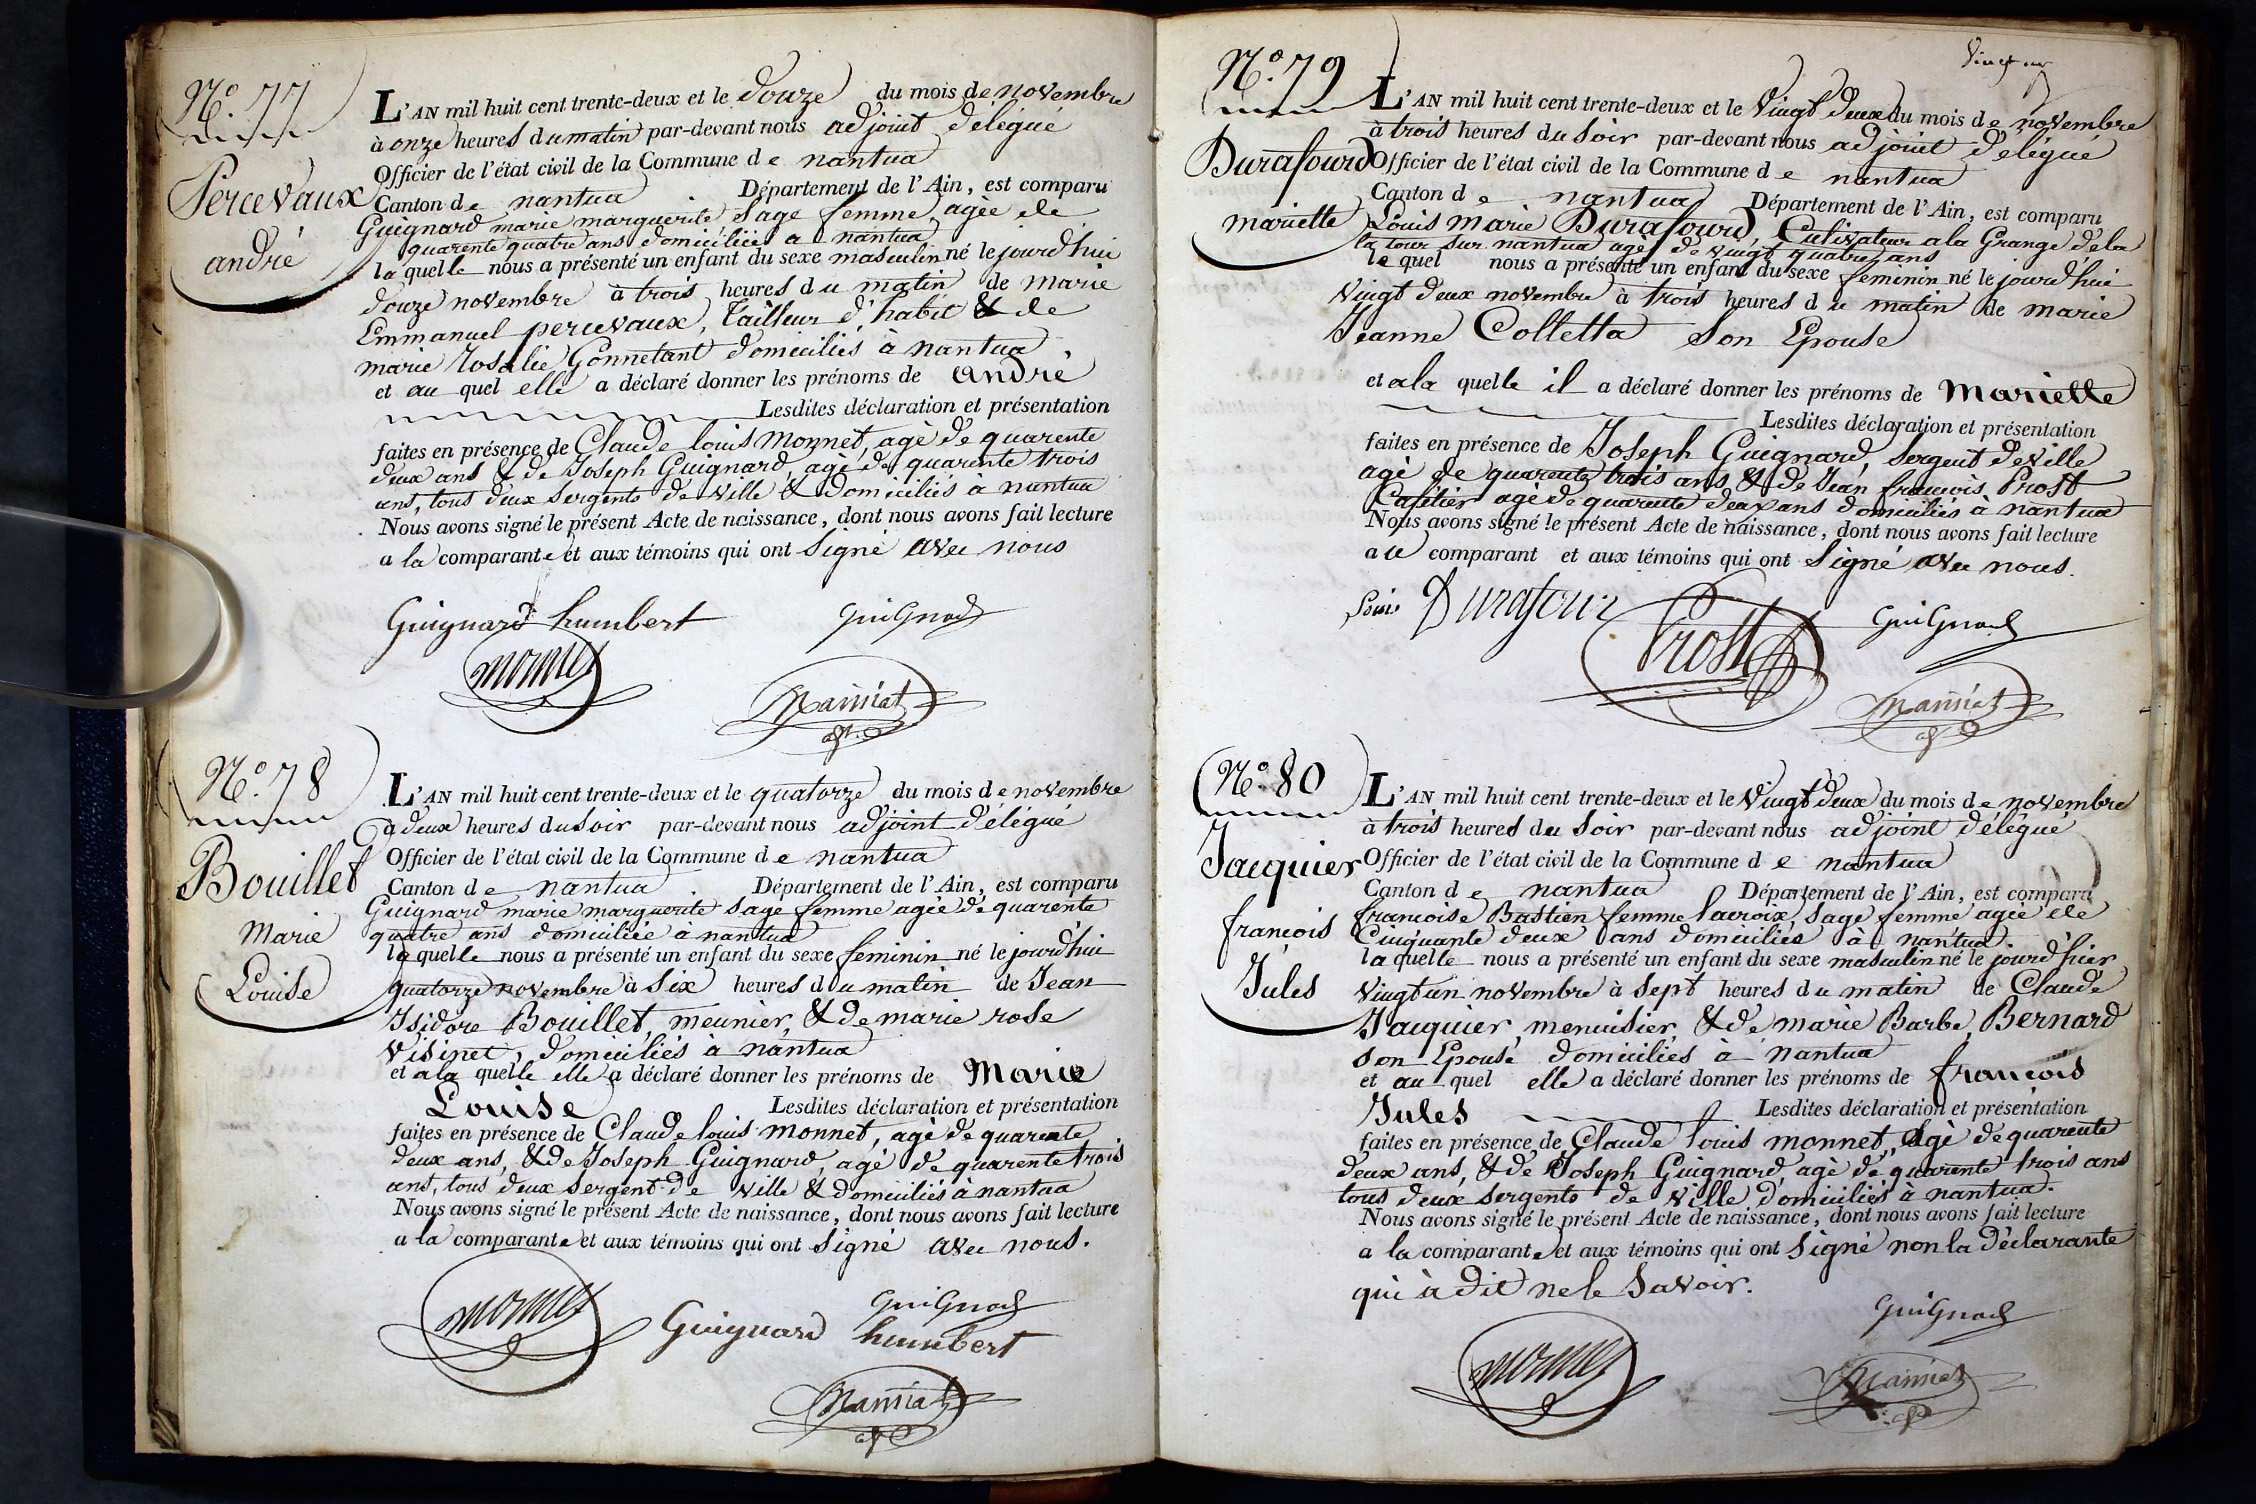 N.º 77
Percevaux
andré
L'AN mil huit cent trente-deux et le douze du mois de novembre
à onze heures du matin par-devant nous adjoint délégué
Officier de l'état civil de la Commune de nantua
Canton de nantua . Département de l'Ain, est comparu
Guignard marie marguerite sage femme agée de
quarente quatre ans domiciliée a nantua
la quelle nous a présenté un enfant du sexe masculin né le jourd'hui
douze novembre à trois heures du matin de marie
Emmanuel percevaux, tailleur d'habit & de
marie Rosalie Gonnetant domiciliés à nantua
et au quel elle a déclaré donner les prénoms de andré
Lesdites déclaration et présentation
faites en présence de Claude louis Monnet, agé de quarente
deux ans & de Joseph Guignard, agé de quarente trois
ans, tous deux sergents de ville & domiciliés a nantua
Nous avons signé le présent Acte de naissance, dont nous avons fait lecture
a la comparante et aux témoins qui ont signé avec nous
Guignard humbert
Guignard
monnet
N.º 78
Bouillet
Marie
Louise
L'AN mil huit cent trente-deux et le quatorze du mois de novembre
à deux heures du soir par-devant nous adjoint délégué
Officier de l'état civil de la Commune de nantua
Canton de nantua . Département de l'Ain, est comparu
Guignard marie marguerite sage femme agée de quarente
quatre ans domiciliée à nantua
la quelle nous a présenté un enfant du sexe féminin né le jourd'hui
quatorze novembre à six heures du matin de Jean
Isidore Bouillet, meunier, & de marie rose
Visinet, domiciliés à nantua
et a la quelle elle a déclaré donner les prénoms de Marie
Louise Lesdites déclaration et présentation
faites en présence de Claude louis monnet, agé de quarente
deux ans, & de Joseph Guignard, agé de quarente trois
ans, tous deux sergent de ville & domiciliés à nantua
Nous avons signé le présent Acte de naissance, dont nous avons fait lecture
a la comparante et aux témoins qui ont signé avec nous.
monnet
Guignard
Guignard humbert
N.º 79
Durafourd
mariette
L'AN mil huit cent trente-deux et le Vingt deux du mois de novembre
à trois heures du soir par-devant nous adjoint délégué
Officier de l'état civil de la Commune de nantua
Canton de nantua Département de l'Ain, est comparu
Louis Marie Durafourd, Cultivateur a la Grange de la
la tour sur nantua agé de vingt quatre ans
le quel nous a présenté un enfant du sexe feminin né le jourd'hui
Vingt deux novembre à trois heures du matin de marie
Jeanne Colletta son Epouse
et a la quelle il a déclaré donner les prénoms de Mariette
Lesdites déclaration et présentation
faites en présence de Joseph Guignard, sergent de ville
agé de quarente trois ans & de Jean françois Prost
Cafetier agé de quarente deux ans domiciliés à nantua
Nous avons signé le présent Acte de naissance, dont nous avons fait lecture
au comparant et aux témoins qui ont signé avec nous.
Durafour
Prost
Guignard
N.º 80
Jacquier
françois
Jules
L'AN mil huit cent trente-deux et le Vingt deux du mois de novembre
à trois heures du soir par-devant nous adjoint délégué
Officier de l'état civil de la Commune de nantua
Canton de nantua Département de l'Ain, est comparu
francoise Bastien femme lacroix, sage femme agée de
Cinquante deux ans domiciliée à nantua.
la quelle nous a présenté un enfant du sexe masculin né le jourd'hier
vingt un novembre à sept heures du matin de Claude
Jacquier, menuisier, & de marie Barbe Bernard
son Epouse domiciliés à nantua
et au quel elle a déclaré donner les prénoms de françois
Jules Lesdites déclaration et présentation
faites en présence de Claude louis monnet, agé de quarente
deux ans, & de Joseph Guignard, agé de quarente trois ans
tous deux sergents de ville domiciliés à nantua.
Nous avons signé le présent Acte de naissance, dont nous avons fait lecture
a la comparante et aux témoins qui ont signé non la déclarante
qui à dit ne le savoir.
Guignard
monnet